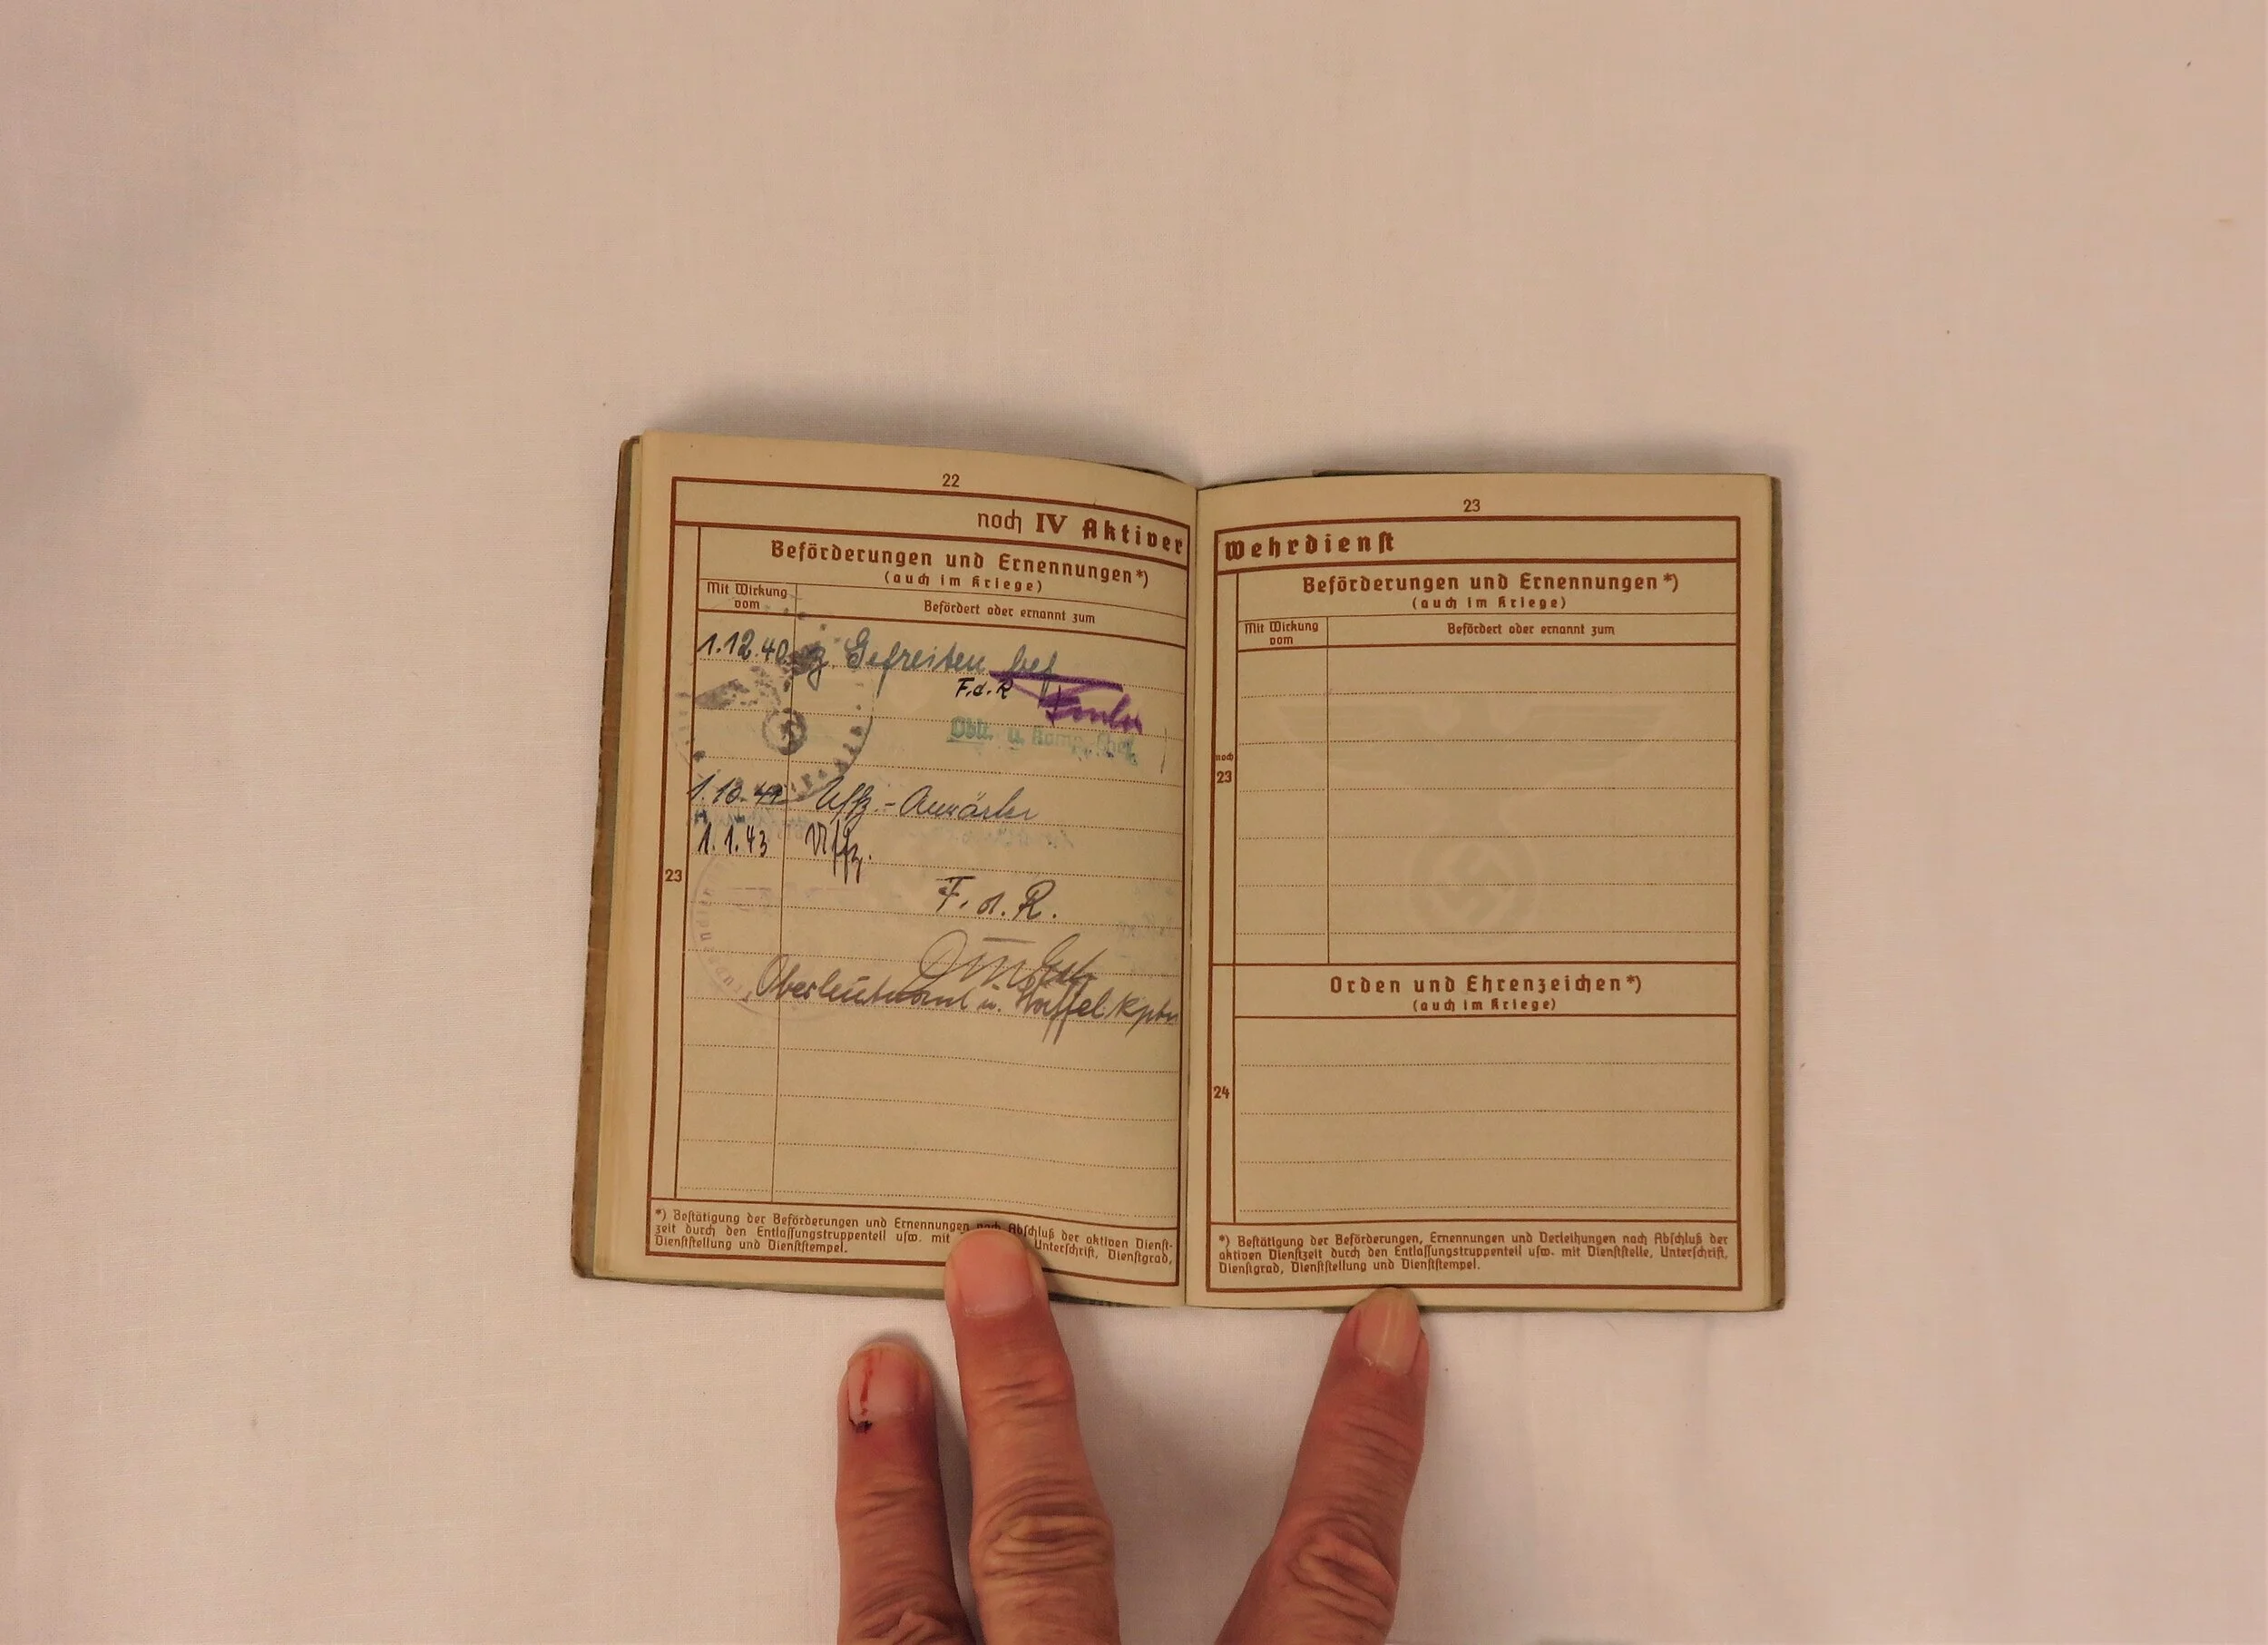 22
noch IV Aktiver
Beförderungen und Ernennungen*)
(auch im Kriege)
Mit Wirkung vom
Befördert oder ernannt zum
1.12.40 z. Gefreiten bef
F.d.R
Oblt. u. Komp. Chef
1.10. Uffz.-Anwärter
1.1.43 Uffz.
23
F. d. R.
Oberleutnant u. Staffelkptn
*) Bestätigung der Beförderungen und Ernennungen nach Abschluß der aktiven Dienst-
zeit durch den Entlassungstruppenteil usw. mit Unterschrift, Dienstgrad,
Dienststellung und Dienststempel.
23
Wehrdienst
Beförderungen und Ernennungen*)
(auch im Kriege)
Mit Wirkung vom
Befördert oder ernannt zum
noch
23
Orden und Ehrenzeichen*)
(auch im Kriege)
24
*) Bestätigung der Beförderungen, Ernennungen und Verleihungen nach Abschluß der
aktiven Dienstzeit durch den Entlassungstruppenteil usw. mit Dienststelle, Unterschrift,
Dienstgrad, Dienststellung und Dienststempel.